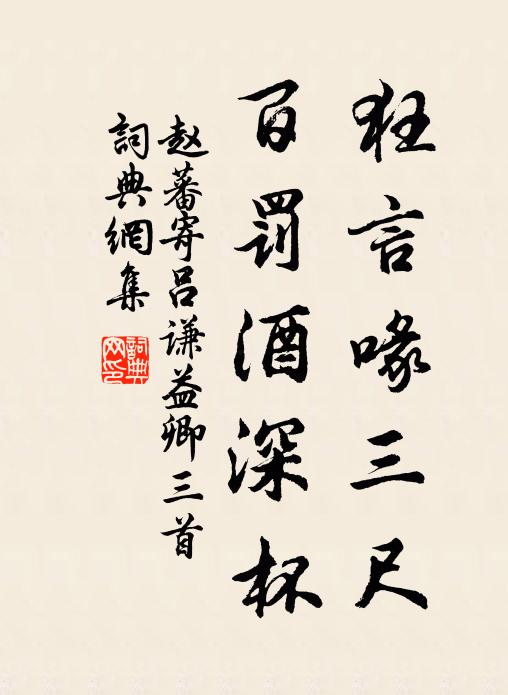 狂言喙三尺
百罰酒深杯
赵蕃寄吕谦益卿三首
詞典網集
詞典网印